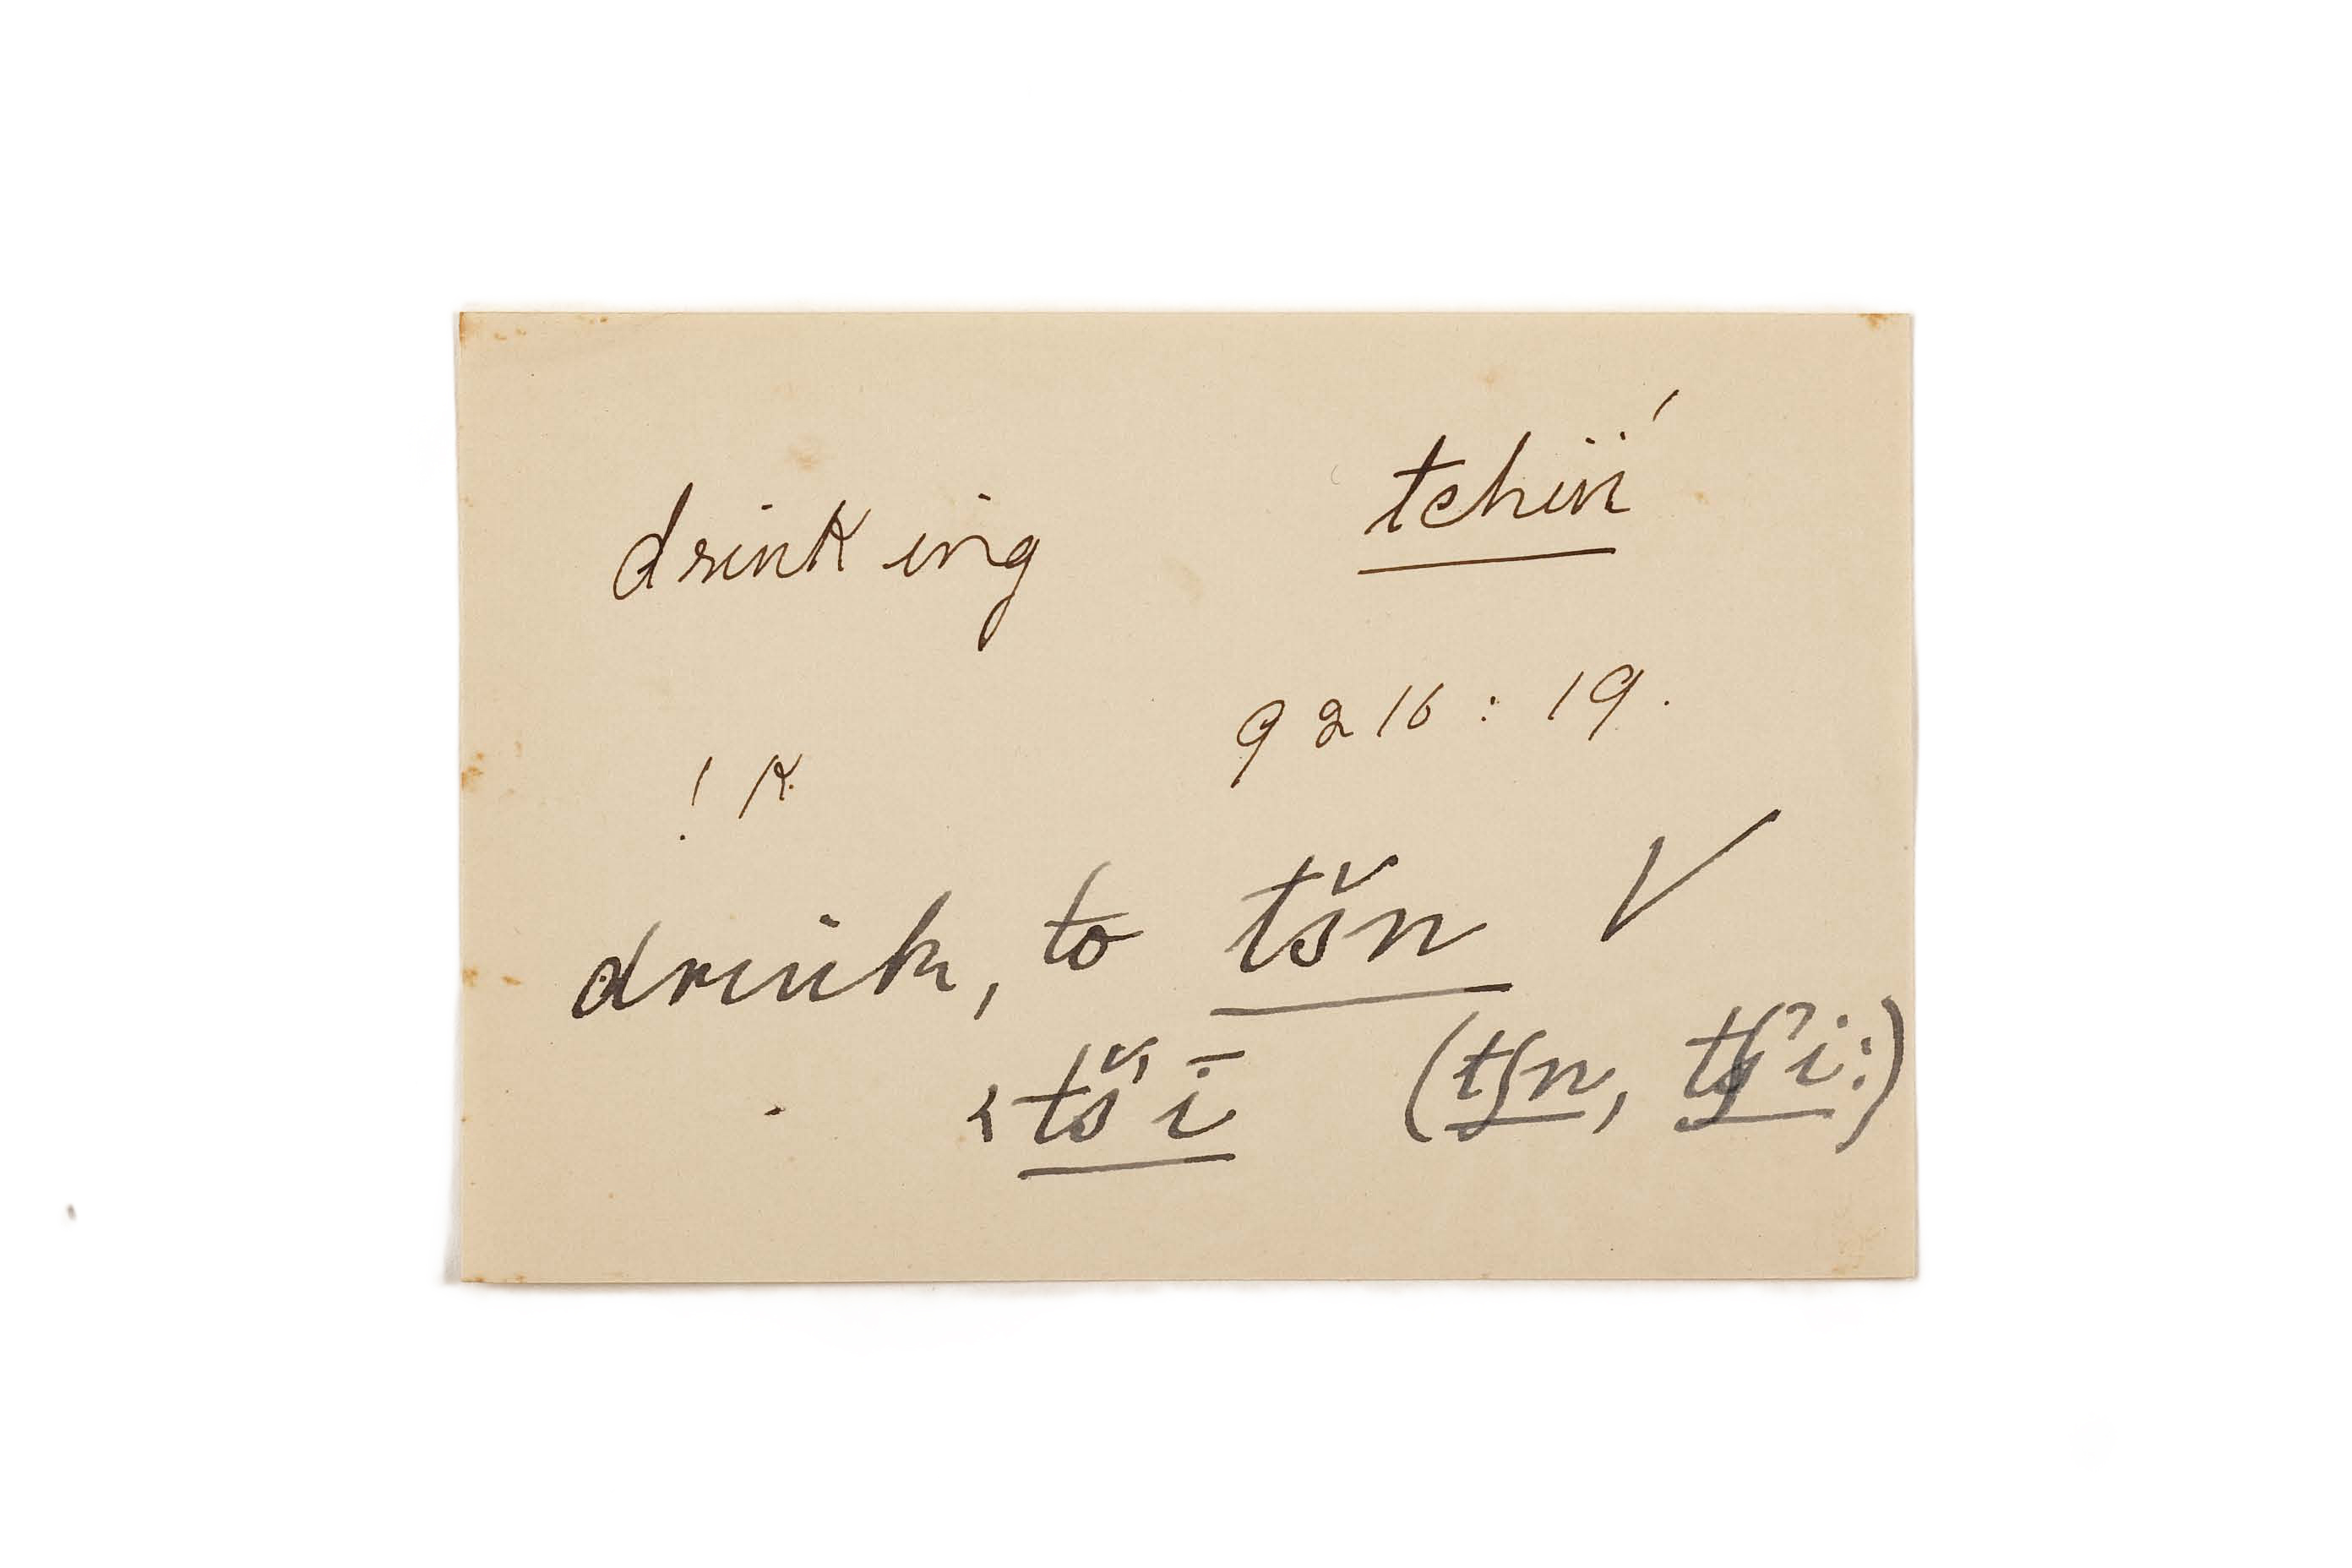 drinking tchiń
9216 : 19.
! k.
drink, to tšn √
< tš’ī (tʃn, tʃʔi:)